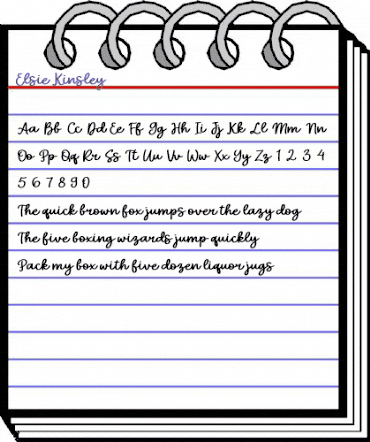 Elsie Kinsley
Aa Bb Cc Dd Ee Ff Gg Hh Ii Jj Kk Ll Mm Nn
Oo Pp Qq Rr Ss Tt Uu Vv Ww Xx Yy Zz 1 2 3 4
5 6 7 8 9 0
The quick brown fox jumps over the lazy dog
The five boxing wizards jump quickly
Pack my box with five dozen liquor jugs